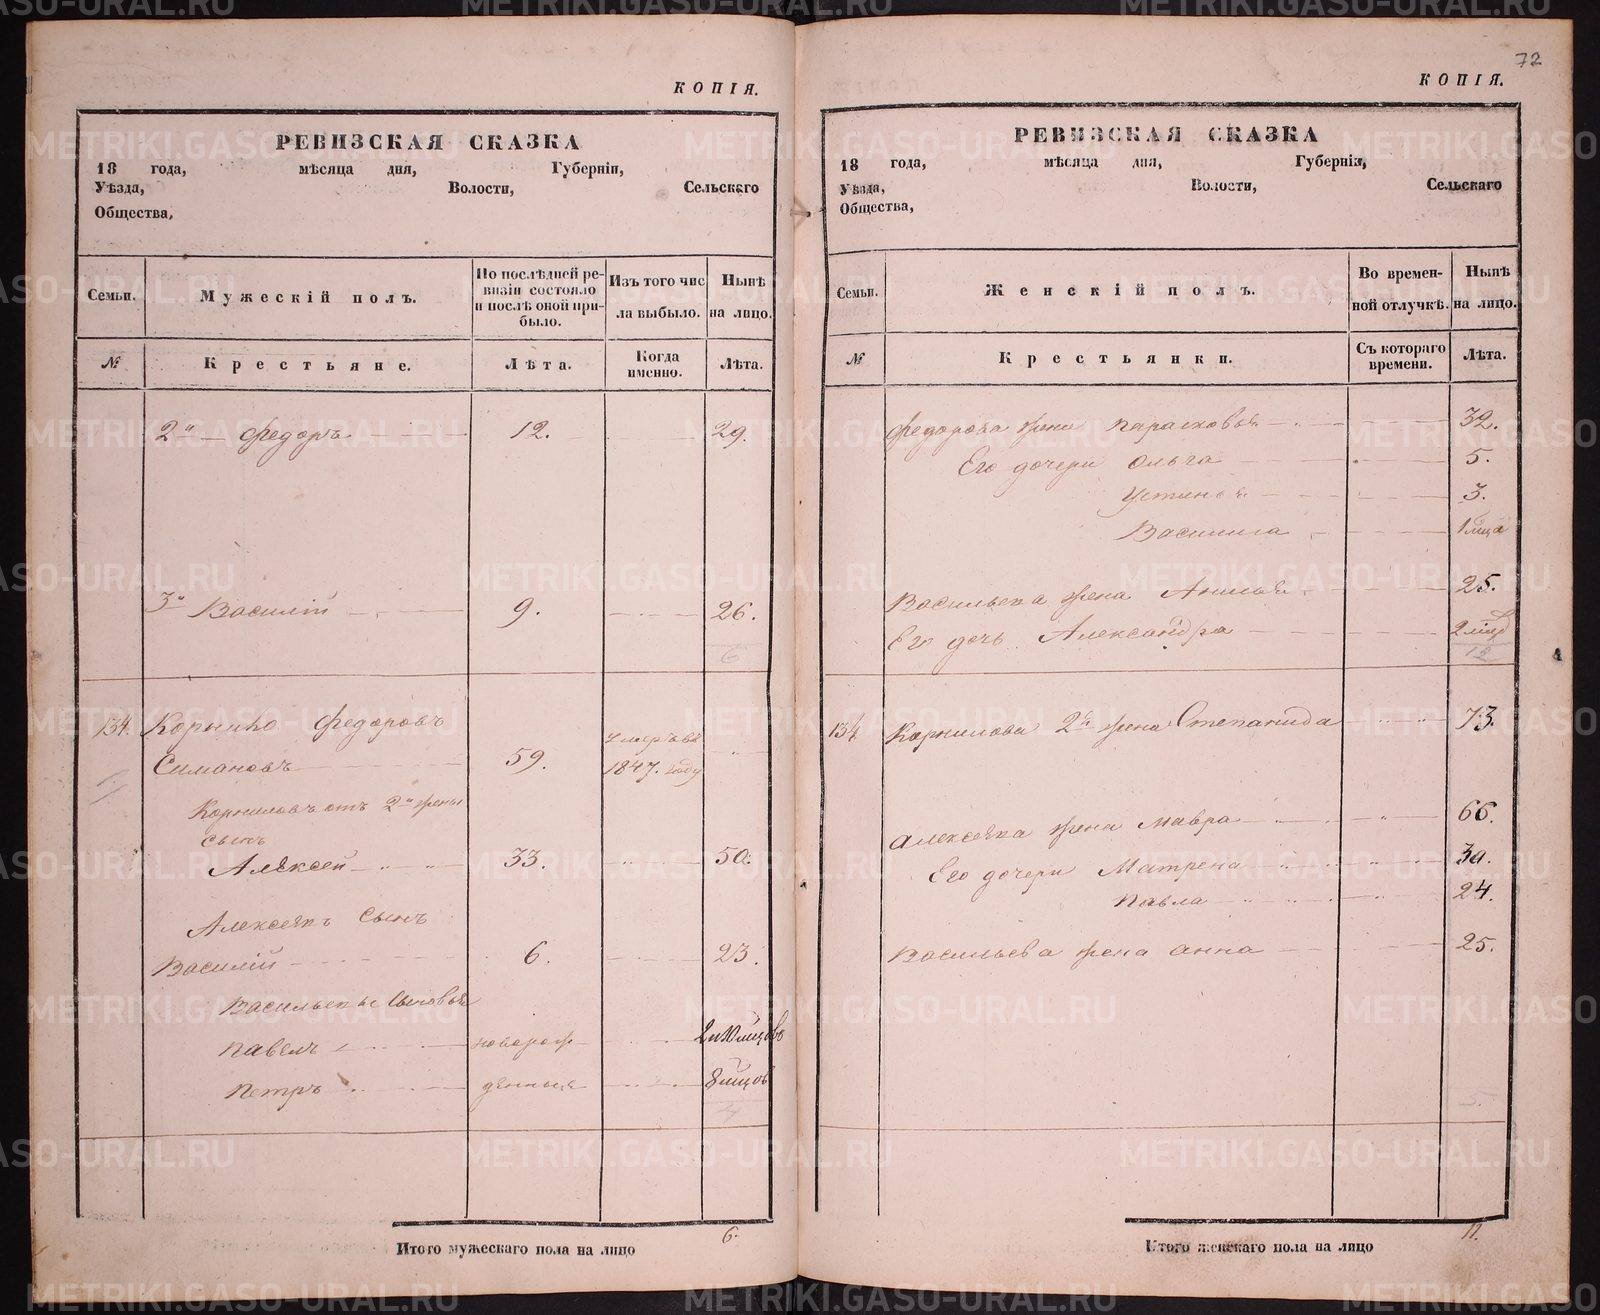 КОПІЯ.
РЕВИЗСКАЯ СКАЗКА
18 года, мѣсяца дня, Губерніи,
Уѣзда, Волости, Сельскаго
Общества,
Семьи. Мужескій полъ. По послѣдней ревизіи состояло и послѣ оной прибыло. Изъ того числа выбыло. Нынѣ на лицо.
№ Крестьяне. Лѣта. Когда именно. Лѣта.
2й Федоръ 12. 29.
3й Василій 9. 26.
6
134. Федоровъ
Симановъ 59. умеръ въ 1847. году
Корниловъ отъ 2й жены
сынъ
Алексей 33. 50.
Алексеявъ Сынъ
Василій 6. 23.
Васильевы Сыновья
Павелъ новорож
Петръ денные
4
Итого мужескаго пола на лицо 6.
72
КОПІЯ.
РЕВИЗСКАЯ СКАЗКА
18 года, мѣсяца дня, Губерніи,
Уѣзда, Волости, Сельскаго
Общества,
Семьи. Женскій полъ. Во временной отлучкѣ. Нынѣ на лицо.
№ Крестьянки. Съ котораго времени. Лѣта.
Федорова жена Парасковья 32.
Его дочери Ольга 5.
Устинья 3.
Василиса
Васильева жена 25.
Его дочь Александра
12
134 Корнилова 2я жена Степанида 73.
Алексеява жена Мавра 66.
Его дочери Матрена 30.
Павла 24.
Васильева жена Анна 25.
5.
Итого женскаго пола на лицо 11.
METRIKI.GASO-URAL.RU